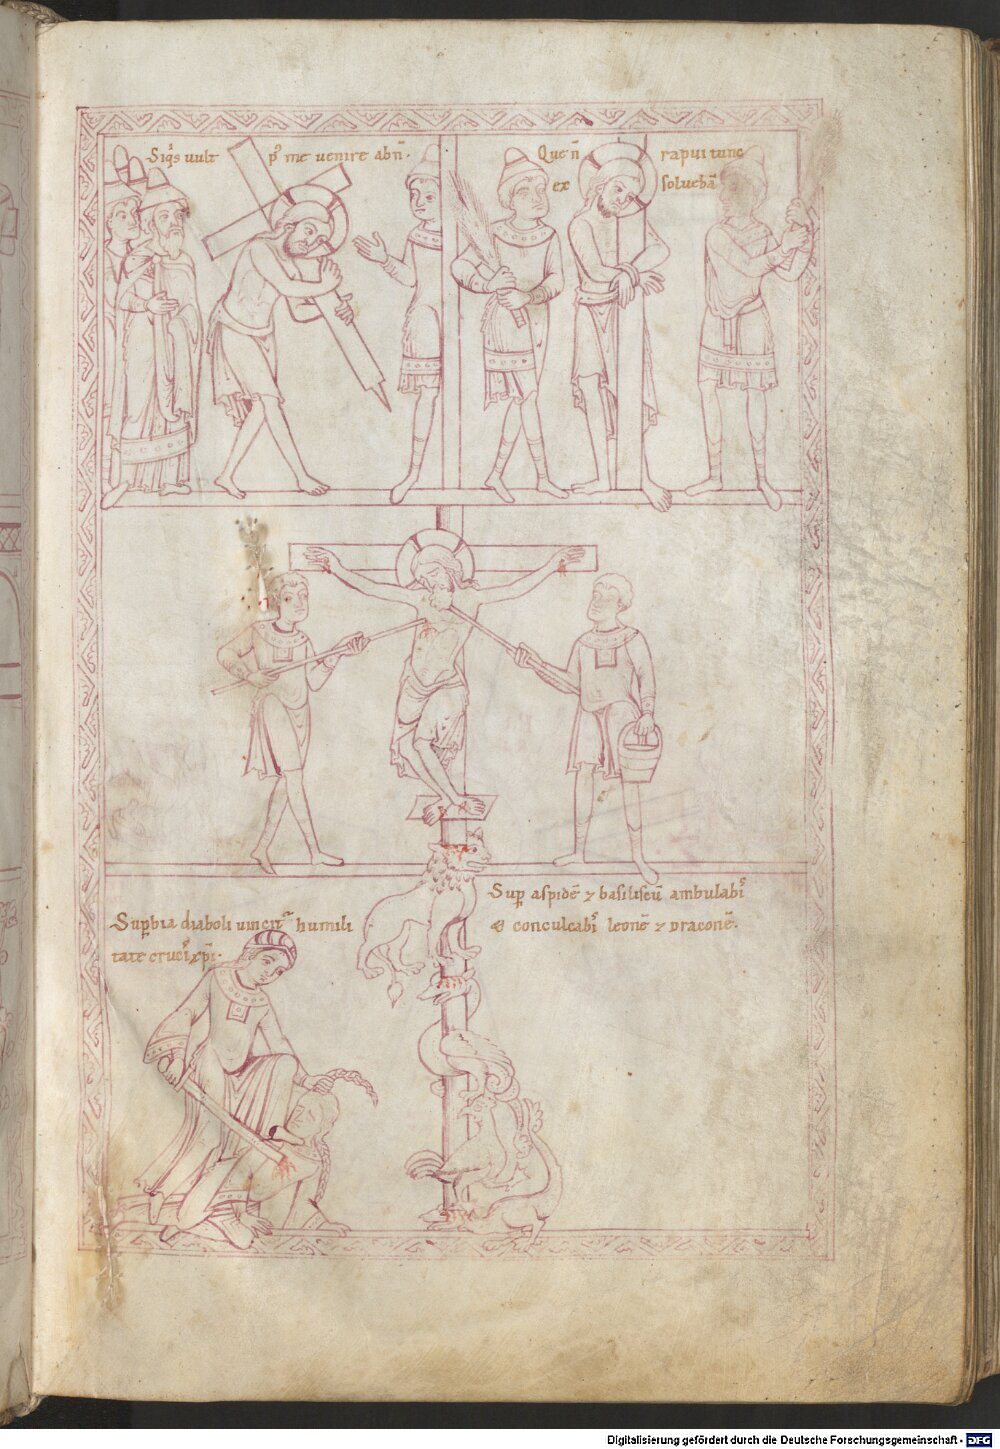 Siq̇s uult p̱ me uenire abn̄·
Que n̄ rapui tunc
ex soluebā
Sup̱ aspidē ⁊ basiliscū ambulabꝭ
& conculcabꝭ leonē ⁊ draconē·
Sup̱bia diaboli uincit᷑ humili
tate crucꝭ xp̄i·
Digitalisierung gefördert durch die Deutsche Forschungsgemeinschaft - DFG